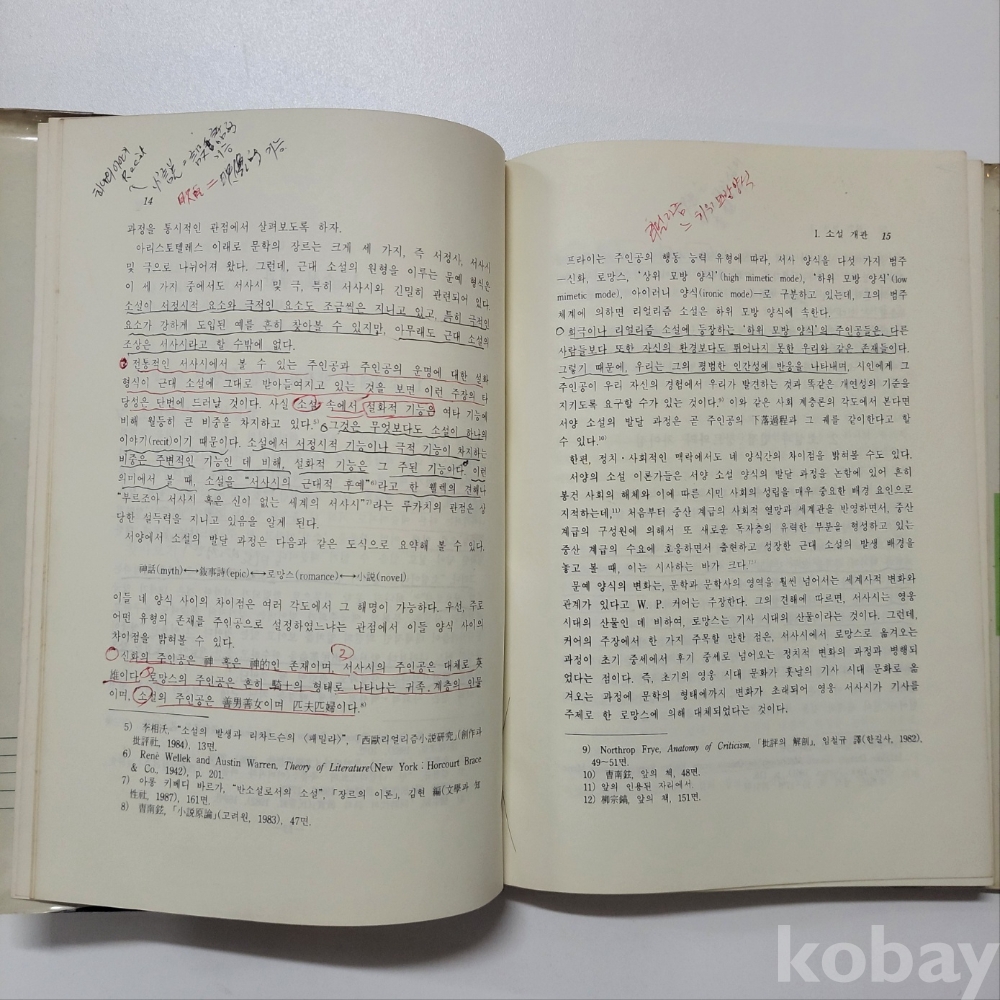 하나의 이야기
Recit
14
과정을 통시적인 관점에서 살펴보도록 하자.
아리스토텔레스 이래로 문학의 장르는 크게 세 가지, 즉 서정시, 서사시
및 극으로 나뉘어져 왔다. 그런데, 근대 소설의 원형을 이루는 문예 형식은
이 세 가지 중에서도 서사시 및 극, 특히 서사시와 긴밀히 관련되어 있다.
소설이 서정시적 요소와 극적인 요소도 조금씩은 지니고 있고, 특히 극적인
요소가 강하게 도입된 예를 흔히 찾아볼 수 있지만, 아무래도 근대 소설의
조상은 서사시라고 할 수밖에 없다.
전통적인 서사시에서 볼 수 있는 주인공과 주인공의 운명에 대한 설화
형식이 근대 소설에 그대로 받아들여지고 있는 것을 보면 이런 주장의 타
당성은 단번에 드러날 것이다. 사실 소설 속에서 설화적 기능은 여타 기능에
비해 월등히 큰 비중을 차지하고 있다.⁵⁾ 그것은 무엇보다도 소설이 하나의
이야기(recit)이기 때문이다. 소설에서 서정시적 기능이나 극적 기능이 차지하는
비중은 주변적인 기능인 데 비해, 설화적 기능은 그 주된 기능이다. 이런
의미에서 볼 때, 소설을 “서사시의 근대적 후예”⁶⁾라고 한 웰렉의 견해나
“부르조아 서사시 혹은 신이 없는 세계의 서사시”⁷⁾라는 루카치의 관점은 상
당한 설득력을 지니고 있음을 알게 된다.
서양에서 소설의 발달 과정은 다음과 같은 도식으로 요약해 볼 수 있다.
神話(myth)⟷敍事詩(epic)⟷로망스(romance)⟷小說(novel)
이들 네 양식 사이의 차이점은 여러 각도에서 그 해명이 가능하다. 우선, 주로
어떤 유형의 존재를 주인공으로 설정하였느냐는 관점에서 이들 양식 사이의
차이점을 밝혀볼 수 있다.
2
신화의 주인공은 神 혹은 神的인 존재이며, 서사시의 주인공은 대체로 英
雄이다. 로망스의 주인공은 흔히 騎士의 형태로 나타나는 귀족 계층의 인물
이며, 소설의 주인공은 善男善女이며 匹夫匹婦이다.⁸⁾
5) 李相沃, “소설의 발생과 리차드슨의 《패밀라》”, 「西歐리얼리즘小說硏究」(創作과
批評社, 1984), 13면.
6) René Wellek and Austin Warren, Theory of Literature(New York : Horcourt Brace
& Co., 1942), p. 201.
7) 아롱 키베디 바르가, “반소설로서의 소설”, 「장르의 이론」, 김현 編(文學과 知
性社, 1987), 161면.
8) 曺南鉉, 「小說原論」(고려원, 1983), 47면.
= 하위 모방양식
I. 소설 개관 15
프라이는 주인공의 행동 능력 유형에 따라, 서사 양식을 다섯 가지 범주
—신화, 로망스, ‘상위 모방 양식’(high mimetic mode), ‘하위 모방 양식’(low
mimetic mode), 아이러니 양식(ironic mode)—로 구분하고 있는데, 그의 범주
체계에 의하면 리얼리즘 소설은 하위 모방 양식에 속한다.
희극이나 리얼리즘 소설에 등장하는 ‘하위 모방 양식’의 주인공들은, 다른
사람들보다 또한 자신의 환경보다도 뛰어나지 못한 우리와 같은 존재들이다.
그렇기 때문에, 우리는 그의 평범한 인간성에 반응을 나타내며, 시인에게 그
주인공이 우리 자신의 경험에서 우리가 발견하는 것과 똑같은 개연성의 기준을
지키도록 요구할 수가 있는 것이다.⁹⁾ 이와 같은 사회 계층론의 각도에서 본다면
서양 소설의 발달 과정은 곧 주인공의 下落過程과 그 궤를 같이한다고 할
수 있다.¹⁰⁾
한편, 정치·사회적인 맥락에서도 네 양식간의 차이점을 밝혀볼 수도 있다.
서양의 소설 이론가들은 서양 소설 양식의 발달 과정을 논함에 있어 흔히
봉건 사회의 해체와 이에 따른 시민 사회의 성립을 매우 중요한 배경 요인으로
지적하는데,¹¹⁾ 처음부터 중산 계급의 사회적 열망과 세계관을 반영하면서, 중산
계급의 구성원에 의해서 또 새로운 독자층의 유력한 부분을 형성하고 있는
중산 계급의 수요에 호응하면서 출현하고 성장한 근대 소설의 발생 배경을
놓고 볼 때, 이는 시사하는 바가 크다.
문예 양식의 변화는, 문학과 문학사의 영역을 훨씬 넘어서는 세계사적 변화와
관계가 있다고 W. P. 커어는 주장한다. 그의 견해에 따르면, 서사시는 영웅
시대의 산물인 데 비하여, 로망스는 기사 시대의 산물이라는 것이다. 그런데,
커어의 주장에서 한 가지 주목할 만한 점은, 서사시에서 로망스로 옮겨오는
과정이 초기 중세에서 후기 중세로 넘어오는 정치적 변화의 과정과 병행되
었다는 점이다. 즉, 초기의 영웅 시대 문화가 훗날의 기사 시대 문화로 옮
겨오는 과정에 문학의 형태에까지 변화가 초래되어 영웅 서사시가 기사를
주제로 한 로망스에 의해 대체되었다는 것이다.
9) Northrop Frye, Anatomy of Criticism, 「批評의 解剖」, 임철규 譯(한길사, 1982),
49~51면.
10) 曺南鉉, 앞의 책, 48면.
11) 앞의 인용된 자리에서.
12) 柳宗鎬, 앞의 책, 151면.
kobay